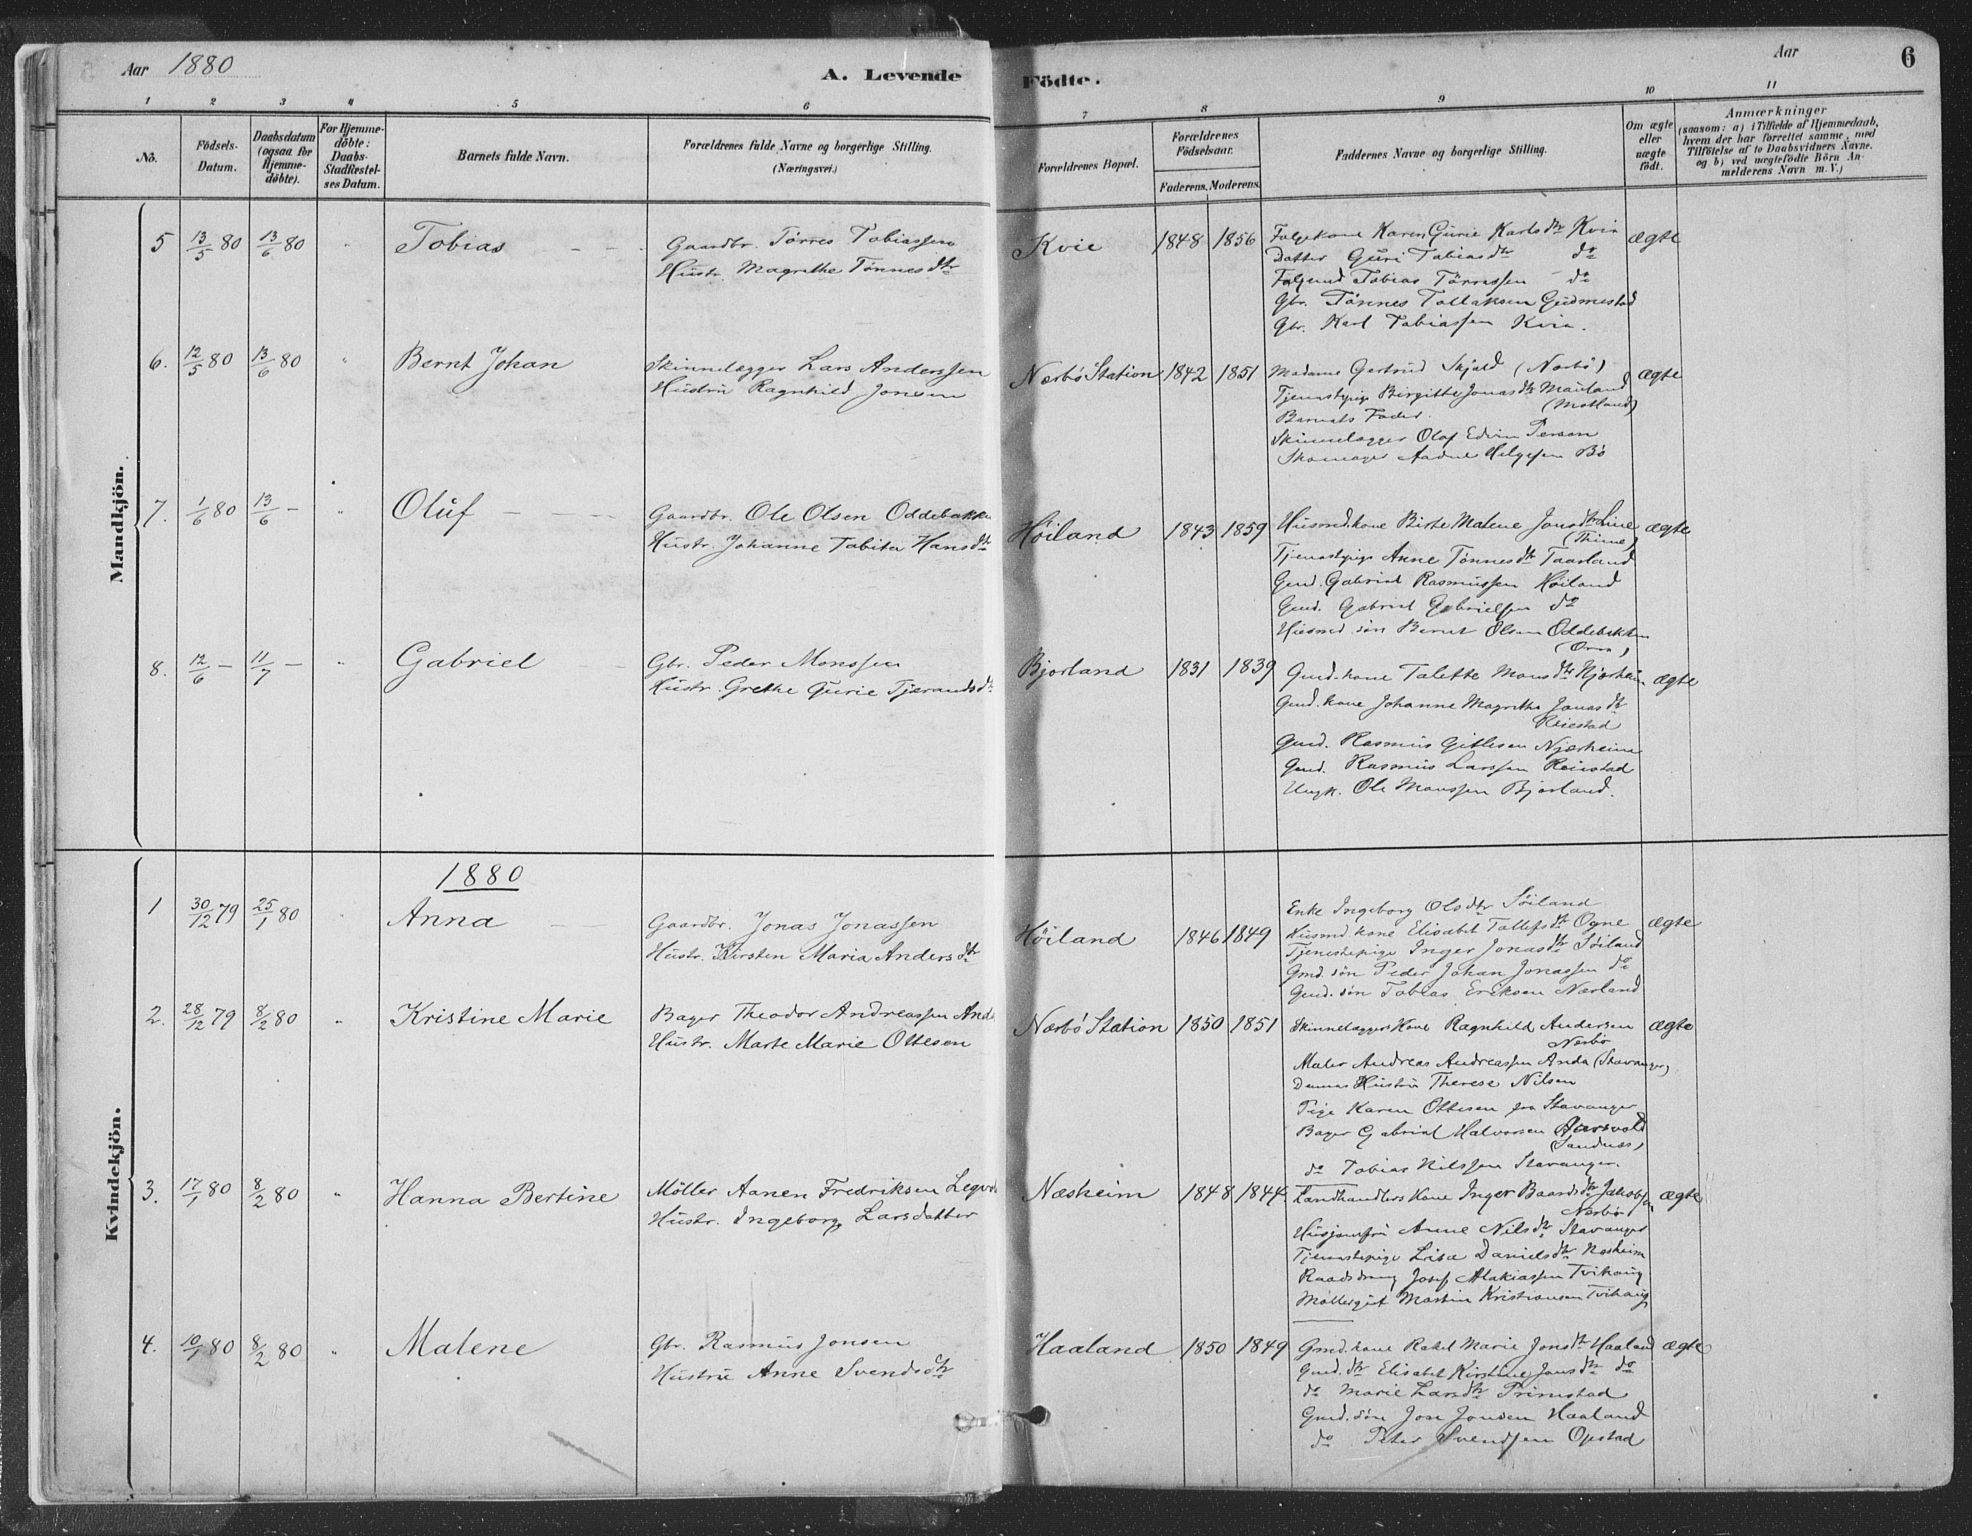 Aar 1880
A. Levende Födte.
Aar
6
1 2 3 4 5 6 7 8 9 10 11
No.
Födsels-Datum.
Daabsdatum (ogsaa for Hjemme-döbte).
For Hjemme-döbte: Daabs-Stadfæstel-ses Datum.
Barnets fulde Navn.
Forældrenes fulde Navne og borgerlige Stilling. (Næringsvei.)
Forældrenes Bopæl.
Forældrenes Födselsaar.
Faderens. Moderens.
Faddernes Navne og borgerlige Stilling.
Om ægte eller uægte födt.
Anmærkninger
(saasom: a) i Tilfælde af Hjemmedaab, hvem der har forrettet samme, med Tilföielse af to Daabsvidners Navne, og b) ved uægtefödte Börn An-melderens Navn m. V.)
Mandkjön.
5 13/5 80 13/6 80 " Tobias
Gaardbr. Tørres Tobiassen
Hustr. Magrethe Tønnesdtr
Kvie 1848 1856
Følgekone Karen Gurie Karlsdtr Kvia
Datter Guri Tobiasdtr do
Følgemd Tobias Tørressen do
Gbr. Tønnes Tollaksen Gudmestad
Gbr. Karl Tobiassen Kvia.
ægte
6. 12/5 80 13/6 80 " Bernt Johan
Skinnelægger Lars Anderssen
Hustru Ragnhild Jonsen
Nærbø Station 1842 1851
Madame Gertrud Skjold (Nærbø)
Tjenestepige Birgitte Jonasdtr Mauland
(Motland)
Barnets Fader.
Skinnelægger Olaf Edvin Person
Skomager Aadne Helgesen Bø
ægte
7. 1/6 80 13/6 — " Oluf
Gaardbr. Ole Olsen Oddebakke
Hustr. Johanne Tabita Hansdtr
Høiland 1843 1859
Husmd.kone Birte Malene Jonsdtr Line
(Thime)
Tjenestepige Anne Tønnesdtr Taarland
Gmd. Gabriel Rasmussen Høiland
Gmd. Gabriel Gabrielsen do
Husmd. søn Bernt Olsen Oddebakken
ægte
8. 12/6 — 11/7 — " Gabriel
Gbr. Peder Monssen
Hustr. Grethe Gurie Tjerandsdtr
Bjorland 1831 1839
Gmd.kone Talette Monsdtr Njærheim
Gmd. kone Johanne Magrethe Jonasdtr
Reiestad
Gmd. Rasmus Gitlesen Njærheim
Gmd. Rasmus Larssen Reiestad
Ungk. Ole Monssen Bjorland.
ægte
Kvindekjön.
1880
1 30/12 79 25/1 80 " Anna
Gaardbr. Jonas Jonassen
Hustr. Kirsten Maria Andersdtr
Høiland 1846 1849
Enke Ingeborg Olsdtr Søiland
Husmd kone Elisabet Tollefsdtr Ogne
Tjenestepige Inger Jonasdtr Søiland
Gmd. søn Peder Johan Jonassen do
Gmd. søn Tobias Eriksen Nærland
ægte
2. 28/12 79 8/2 80 " Kristine Marie
Bager Theodor Andreassen Anda
Hustr. Marte Marie Ottesen
Nærbø Station 1850 1851
Skinnelæggers Kone Ragnhild Andersen
Nærbø
Maler Andreas Andreassen Anda (Stavanger)
Dennes Hustru Therese Nilsen
Pige Karen Ottesen fra Stavanger
Bager Gabriel Malvorsen Aarsvold
(Sandnæs)
do Tobias Nilssen Stavanger.
ægte
3. 17/1 80 8/2 80 " Hanna Bertine
Møller Aanen Fredriksen
Hustr. Ingeborg Larsdatter
Næsheim 1848 1844
Landhandlers Kone Inger Baardsdtr Jakobsen
Nærbø
Husjomfru Anne Nilsdtr Stavanger
Tjenestepige Lise Danielsdtr Næsheim
Raadsdreng Josef Malakiassen Tvihaug
Møllergut Martin Kristiansen Tvihaug
ægte
4. 10/1 80 8/2 80 " Malene
Gbr. Rasmus Jonsen
Hustru Anne Svendsdtr
Haaland 1850 1849
Gmd.kone Rakel Marie Jonsdtr Haaland
Gmd. dtr Elisabet Kirstine Jonsdtr do
do Marie Larsdtr Primstad
Gmd. søn Jon Jonsen Haaland
do Peter Svendsen Opstad
ægte